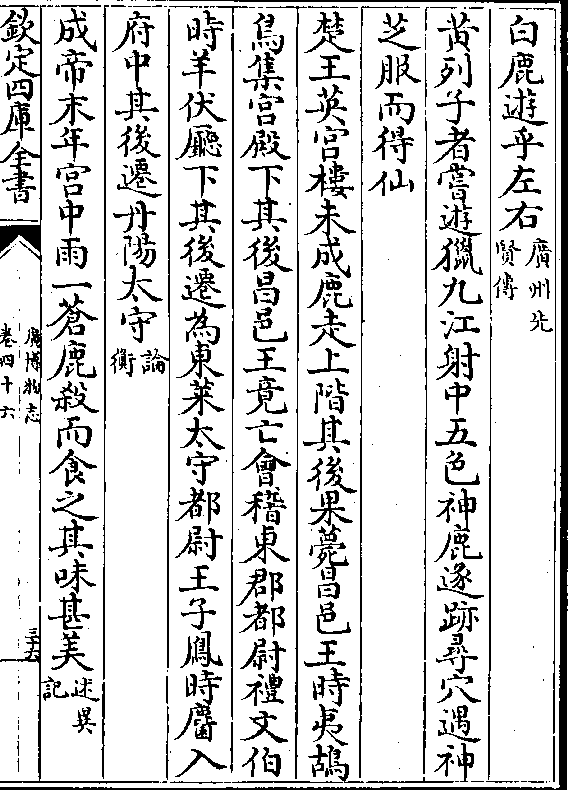 白鹿遊乎左右廣州先賢傳
黄列子者嘗遊獵九江射中五色神鹿逐跡尋穴遇神
芝服而得仙
楚王英宫樓未成鹿走上階其後果薨昌邑王時夷鴣
鳥集宫殿下其後昌邑王竟亡會稽東郡都尉禮文伯
時羊伏廳下其後遷為東萊太守都尉王子鳳時麕入
府中其後遷丹陽太守論衡
成帝末年宫中雨一蒼鹿殺而食之其味甚美述異記
欽定四庫全書
廣博物志
卷四十六
三六